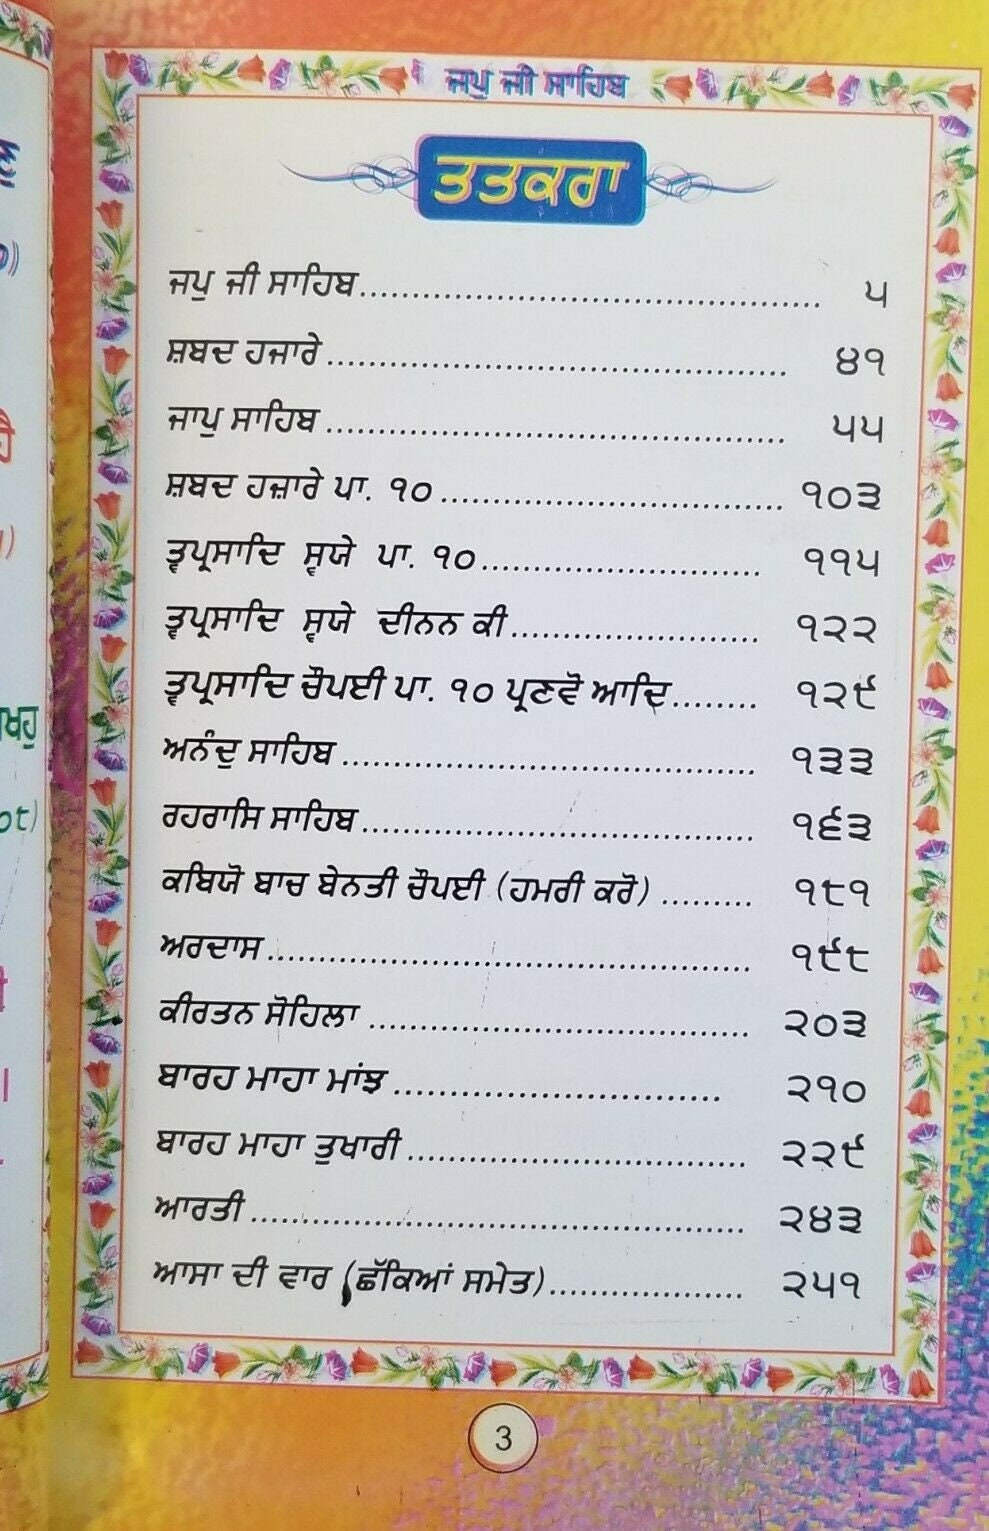 ਜਪੁ ਜੀ ਸਾਹਿਬ
ਤਤਕਰਾ
ਜਪੁ ਜੀ ਸਾਹਿਬ............................................ ੫
ਸ਼ਬਦ ਹਜਾਰੇ............................................ ੪੧
ਜਾਪੁ ਸਾਹਿਬ............................................ ੫੫
ਸ਼ਬਦ ਹਜ਼ਾਰੇ ਪਾ. ੧੦................................. ੧੦੩
ਤ੍ਵਪ੍ਰਸਾਦਿ ਸ੍ਵਯੇ ਪਾ. ੧੦........................... ੧੧੫
ਤ੍ਵਪ੍ਰਸਾਦਿ ਸ੍ਵਯੇ ਦੀਨਨ ਕੀ........................ ੧੨੨
ਤ੍ਵਪ੍ਰਸਾਦਿ ਚੌਪਈ ਪਾ. ੧੦ ਪ੍ਰਣਵੋ ਆਦਿ........ ੧੨੯
ਅਨੰਦੁ ਸਾਹਿਬ........................................ ੧੩੩
ਰਹਰਾਸਿ ਸਾਹਿਬ...................................... ੧੬੩
ਕਬਿਯੋ ਬਾਚ ਬੇਨਤੀ ਚੌਪਈ (ਹਮਰੀ ਕਰੋ) ......... ੧੮੧
ਅਰਦਾਸ.............................................. ੧੯੮
ਕੀਰਤਨ ਸੋਹਿਲਾ .................................... ੨੦੩
ਬਾਰਹ ਮਾਹਾ ਮਾਂਝ ............................... ੨੧੦
ਬਾਰਹ ਮਾਹਾ ਤੁਖਾਰੀ ................................ ੨੨੯
ਆਰਤੀ ............................................... ੨੪੩
ਆਸਾ ਦੀ ਵਾਰ (ਛੱਕਿਆਂ ਸਮੇਤ)................... ੨੫੧
3